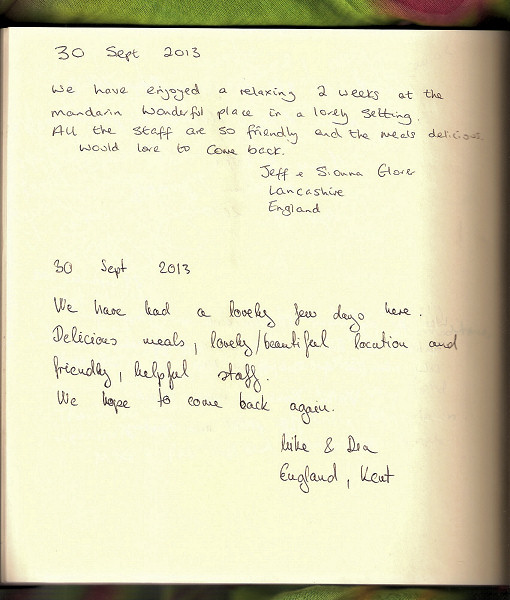 30 Sept 2013
We have enjoyed a relaxing 2 weeks at the
mandarin wonderful place in a lovely setting.
All the staff are so friendly and the meals delicious.
Would love to come back.
Jeff & Sionna Glover
Lancashire
England
30 Sept 2013
We have had a lovely few days here.
Delicious meals, lovely/beautiful location and
friendly, helpful staff.
We hope to come back again.
Mike & Dea
England, Kent